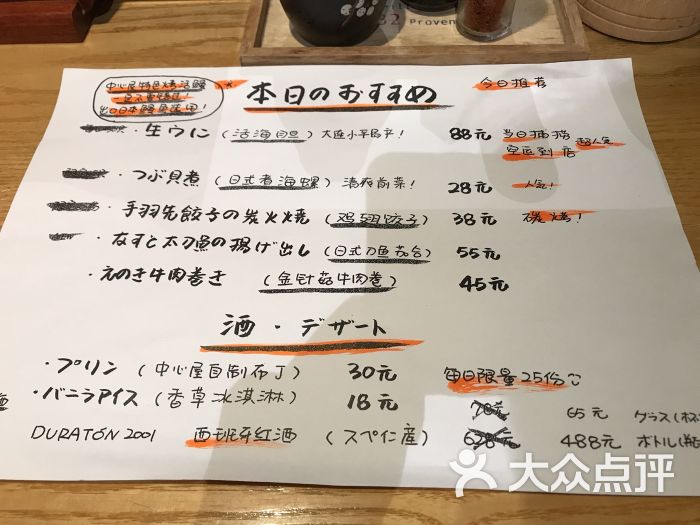 Proven
中心屋特色烤活鳗
一度不需烤焦!
出口日本鳗鱼苗用!
本日のおすすめ
今日推荐
・生ウに (活海胆) 大连小平岛产! 88元 当日捕捞 超人气
空运到店
・つぶ貝煮 (日式煮海螺) 清爽前菜! 28元 人气!
・手羽先餃子の炭火焼 (鸡翅饺子) 38元 碳烤!
・なすと太刀魚の揚げ出し (日式刀鱼茄合) 55元
・えのき牛肉巻き (金针菇牛肉卷) 45元
酒・デザート
・プリン (中心屋自制布丁) 30元 每日限量25份
・バニラアイス (香草冰淇淋) 18元
78元 65元 グラス(杯
DURATÓN 2001 西班牙红酒 (スペイン産) 628元 488元 ボトル(瓶
大众点评